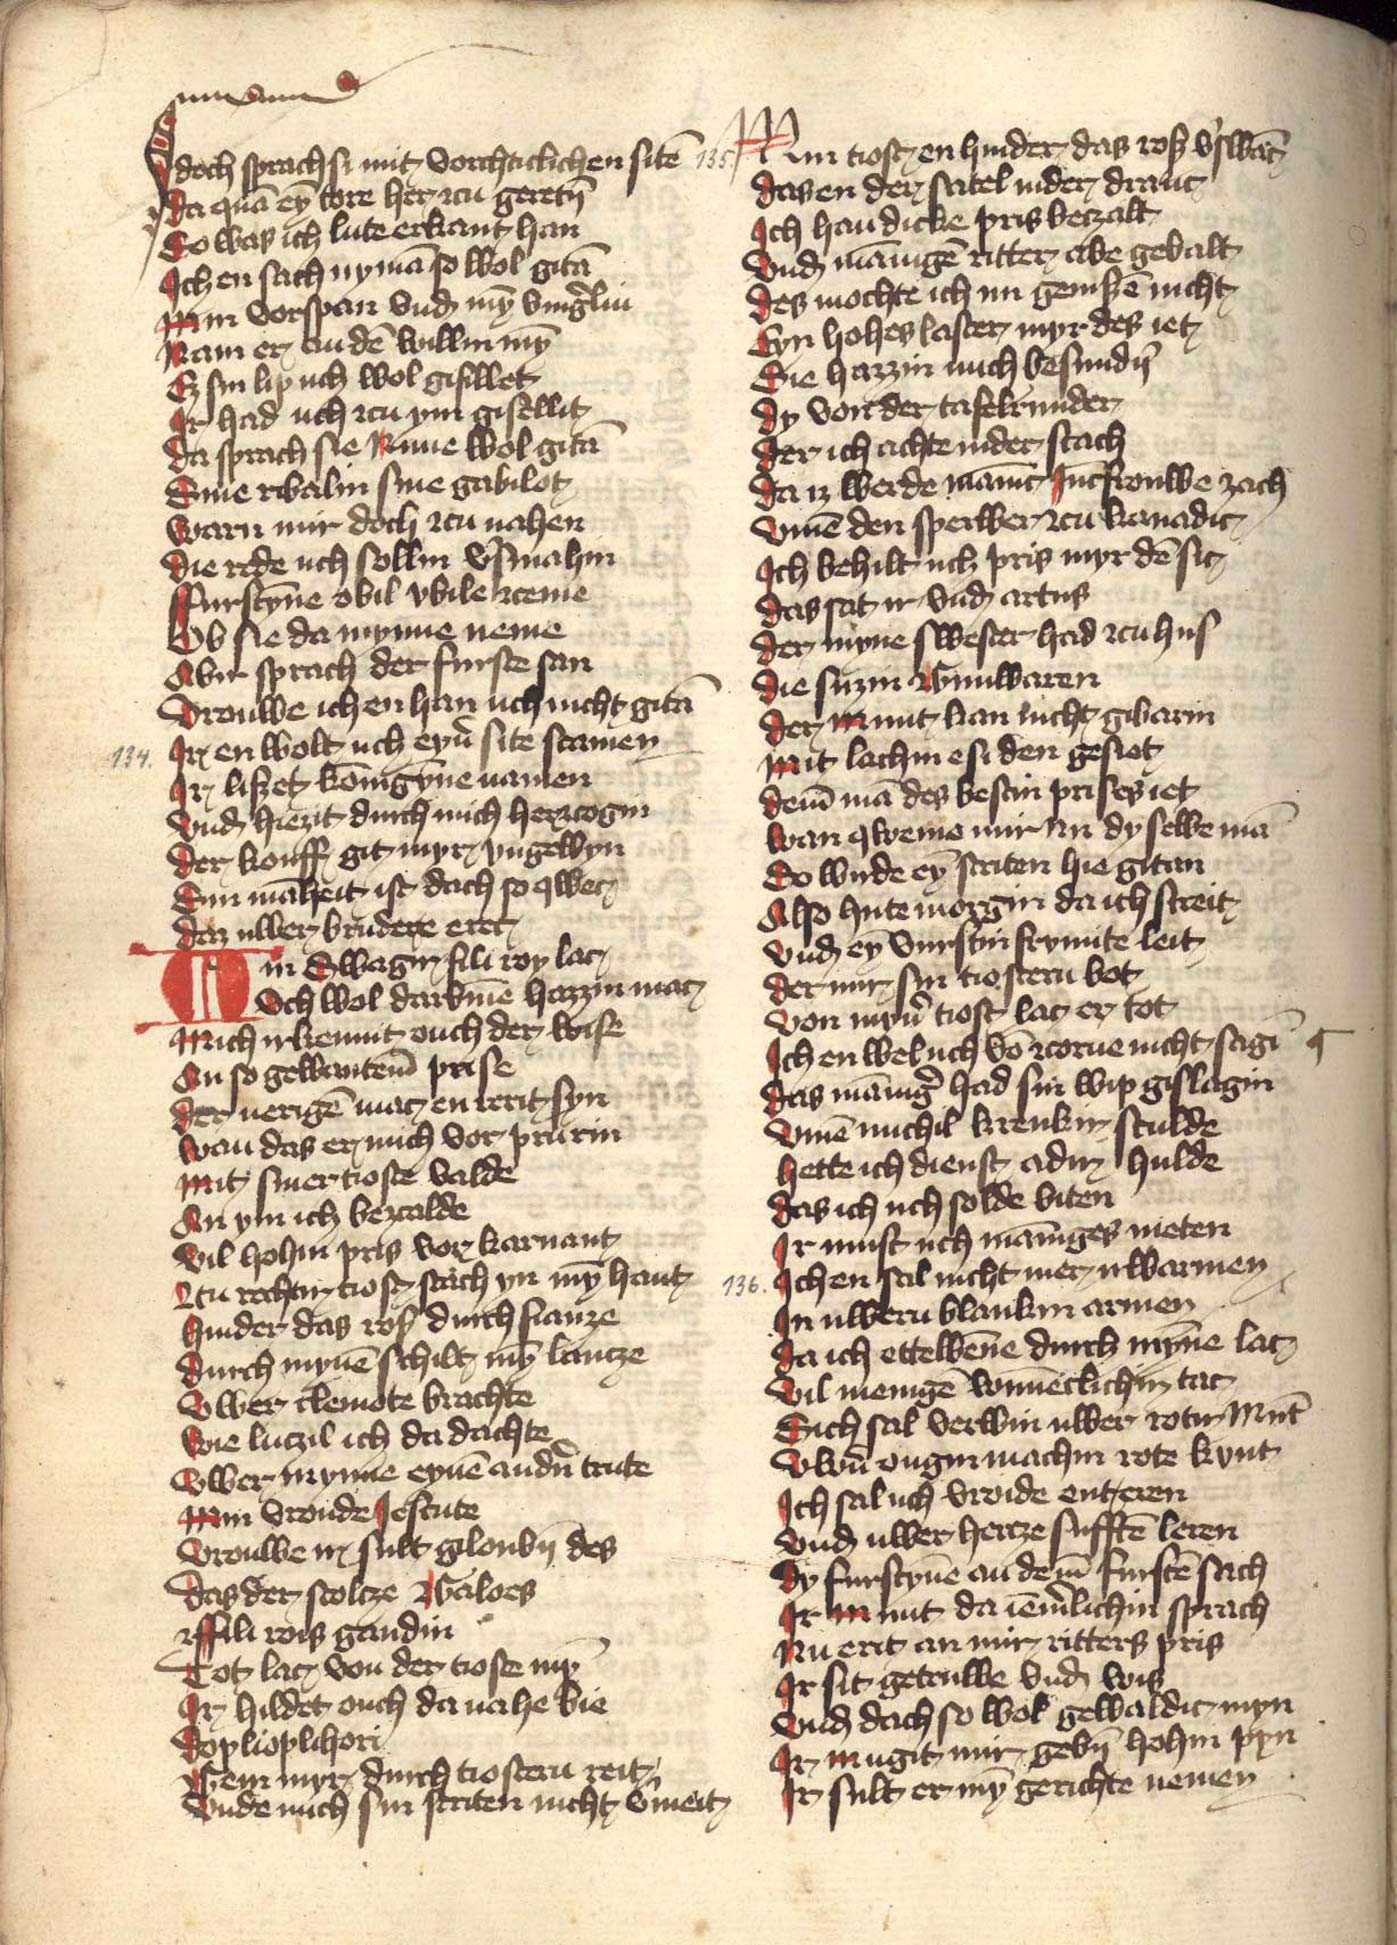 Idoch sprach si mit vorchticlichen sitē
Da quā eȳ tore her zcu geretn̄
So was ich lute erkant han
Ich en sach nymā so wol gitā
Min vorspan vnd mȳ ving̕lin
Nam er an dē willin mȳ
Ey sin lip uch wol gifillet
Ir had uch zcu ym gisellit
Da sprach sie Nume wol gitā
Sine ribalin sine gabilot
Warn mir doch zcu nahen
Die rede uch sollin v̕smahin
Furstȳne obil ubile zceme
Ob sie da mynne neme
Abir sprach der furste san
Vrouwe ich en han uch nicht gitā
134.
Ir en wolt uch eyn̕ site scamen
Ir lißet kōnigȳne namen
Vnd hiezit durch mich herzcogin
Der kouff git myr vngewyn
Sin māheit ist dach so qwec
Daz uwer brudere erec
Min swagir fili roy lac
Uch wol darbm̄e hazzin mac
Mich irkennit ouch der wise
An so gewantem̄ prise
Der nerigē mac en irrit syn
Wan das er mich vor prurin
Mit siner tioste valde
An ym ich bezcalde
Vil hohin pris vor karnant
Zcu rechtir tiost stach yn mȳ hant
Hinder das roß durch fianze
Durch mynē schilt mȳ lantze
Vwer clemote brachte
Wie lutzil ich da dachte
Vwer mynne eynē andn̕ trute
Min vroude Iescute
Vrouwe ir sult gloubn̄ des
Das der stoltze Galoes
Fili rois gandin
Tot lac von der tioste mȳ
Ir hildet ouch da nahe bie
Do plioplihori
Gein myr durch tiosteru reit
Vnde mich sin striten nicht v̕meit
135.
Min tiost en hinder das roß v̕swāc
Das en der satel nider dranc
Ich han dicke pris beczalt
Vnd mānigē ritter abe gevalt
Des mochte ich nu genißē nicht
Eyn hohes laster myr des iet
Sie hazzin mich besundn̕
Dy von der tafelrunder
Der ich achte nider stach
Da iz werde mānic Iūcfrouwe zach
Vmē den sperber zcu kanadic
Ich behilt uch pris myr dē sic
Das sat ir vnd artus
Der myne swester had zcu hus
Die suzin Gunwaren
Der Munt kan nicht gibarin
Mit lachin e si den gesiet
Dem̄ mā des bestin prises iet
Wan qweme mir nu dy selbe mā
So wirde eȳ striten hie gitan
Also hute morgin da ich streit
Vnd eȳ vurstin frumte leit
Der mir sin tiosteru bot
Von myn̕ tiost lac er tot
Ich en wel uch vō zcorne nicht sagī
Das mānig̕ had sin wip gislagin
Vmē muchil krenkir sculde
Hette ich dienst adir hulde
Das ich uch solde biten
Ir must uch māniges nieten
136.
Ich en sal nicht mer irwarmen
In uwern blankin armen
Da ich ettewēne durch mȳne lac
Vil menigē wunēclichin tac
Sich sal verwin uwer rotir Mūt
Vwn̕ ougin machin rote kunt
Ich sal uch vroide enteren
Vnd uwer hertze sufftē leren
Dy furstȳne an dem̄ furstē sach
Ir Munt da iem̕lichin sprach
Nu erit an mir ritters pris
Ir sit getruwe vnd wis
Vnd dach so wol gewaldic myn
Ir mugit mir gebn̄ hohin pyn
Ir sult er mȳ gerichte nemen